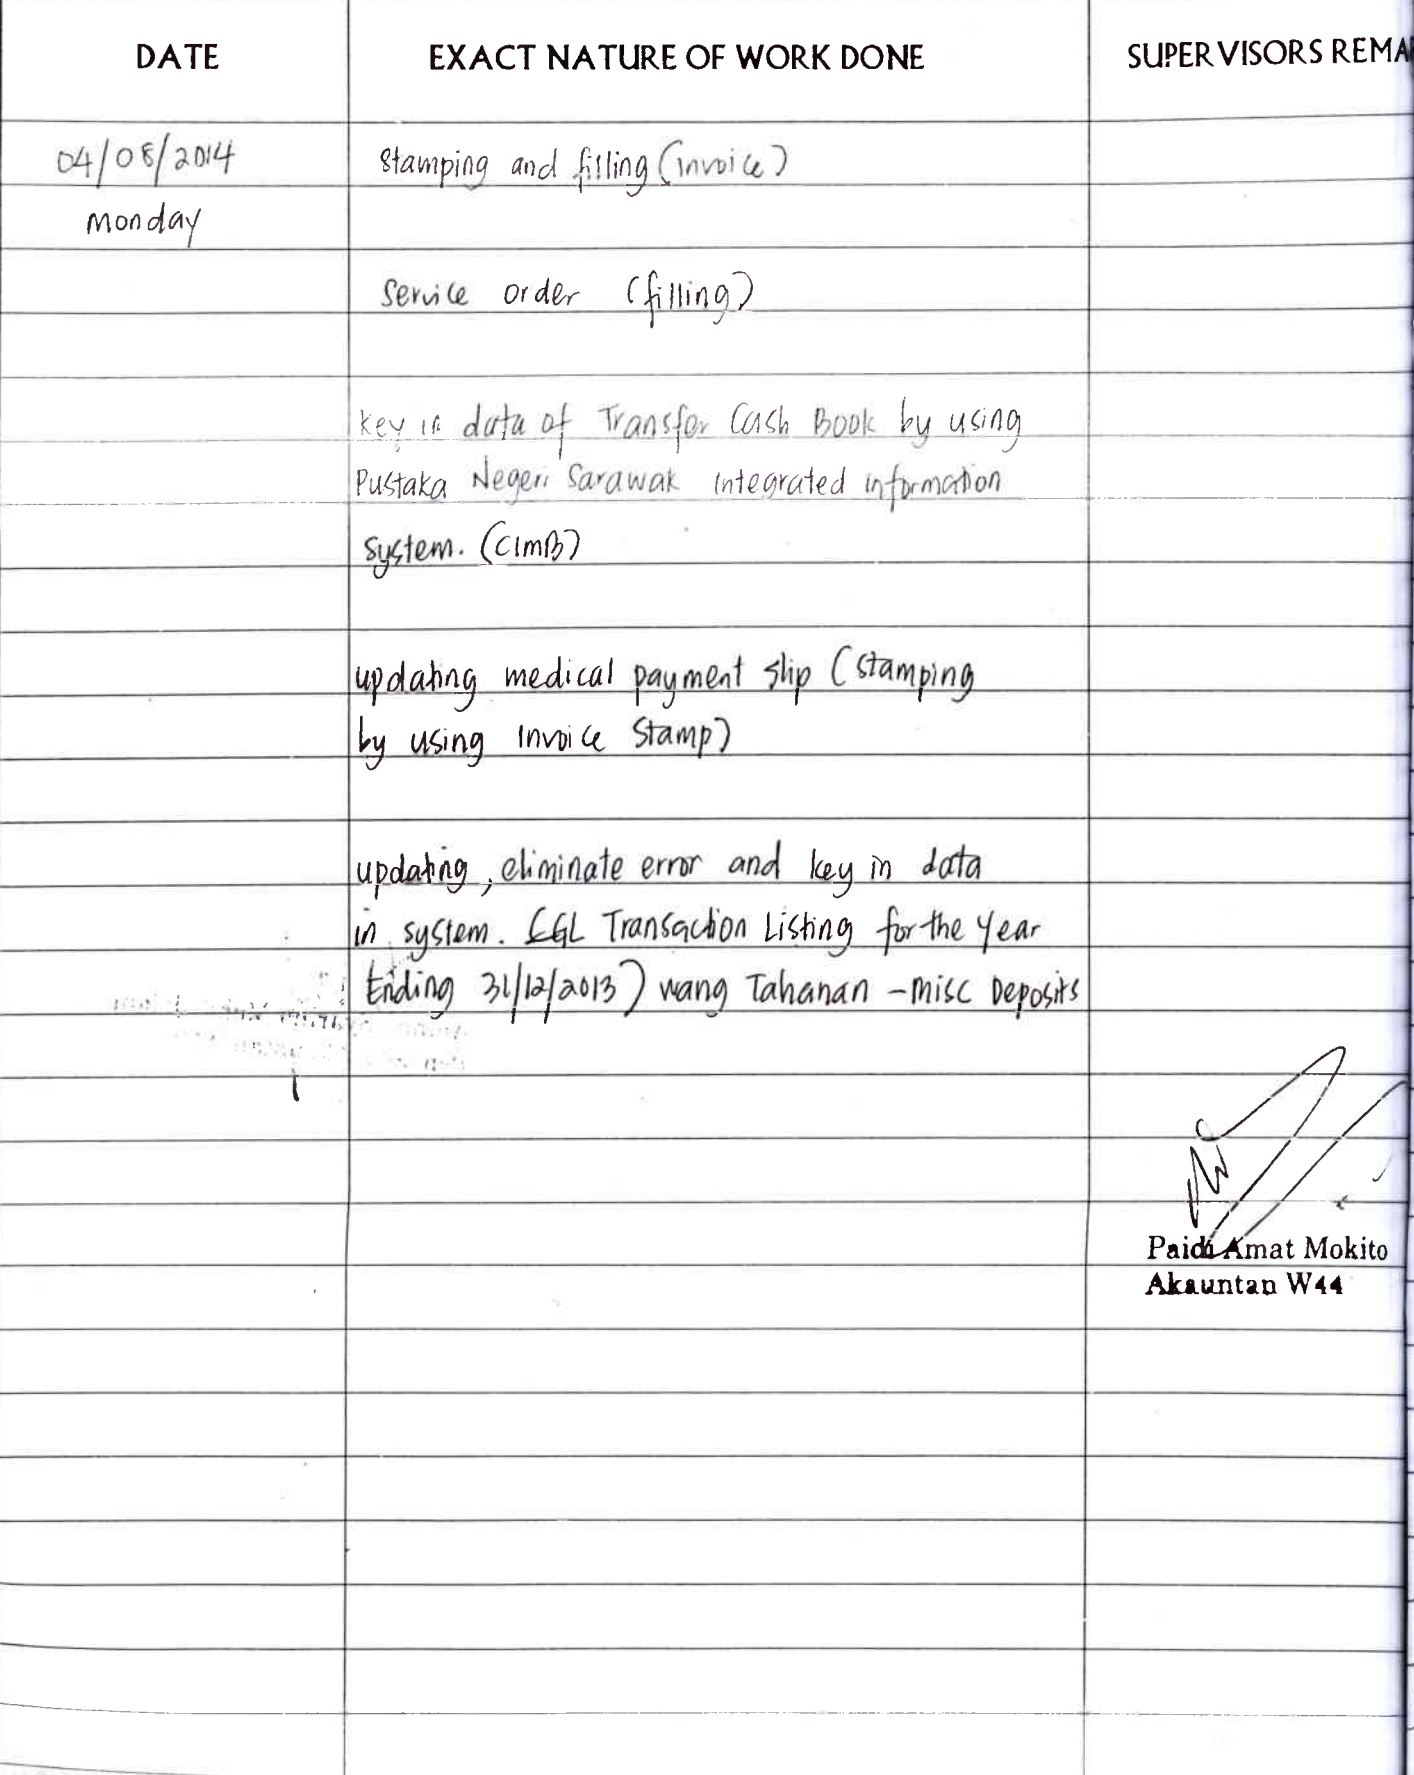 DATE
EXACT NATURE OF WORK DONE
SUPERVISORS REMA
04/08/2014
stamping and filling (invoice)
Monday
Service order (filling)
key in data of Transfer Cash Book by using
Pustaka Negeri Sarawak integrated information
system. (CIMB)
updating medical payment slip (stamping
by using invoice stamp)
updating, eliminate error and key in data
in system. (GL Transaction Listing for the year
Ending 31/12/2013) wang Tahanan - misc Deposits
Paidi Amat Mokito
Akauntan W44